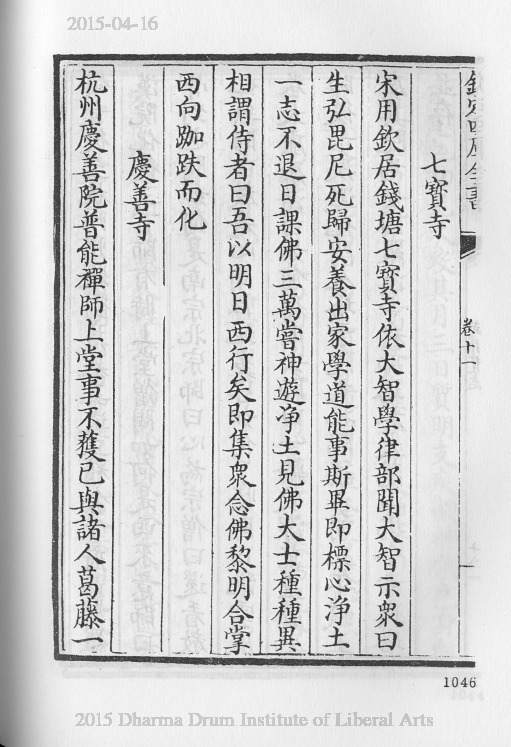 2015-04-16
欽定四庫全書
卷十一
七寶寺
宋用欽居錢塘七寶寺依大智學律部聞大智示衆曰
生弘毘尼死歸安養出家學道能事斯畢即標心淨土
一志不退日課佛三萬嘗神遊淨土見佛大士種種異
相謂侍者曰吾以明日西行矣即集衆念佛黎明合掌
西向跏趺而化
慶善寺
杭州慶善院普能禪師上堂事不獲已與諸人葛藤一
1046
2015 Dharma Drum Institute of Liberal Arts